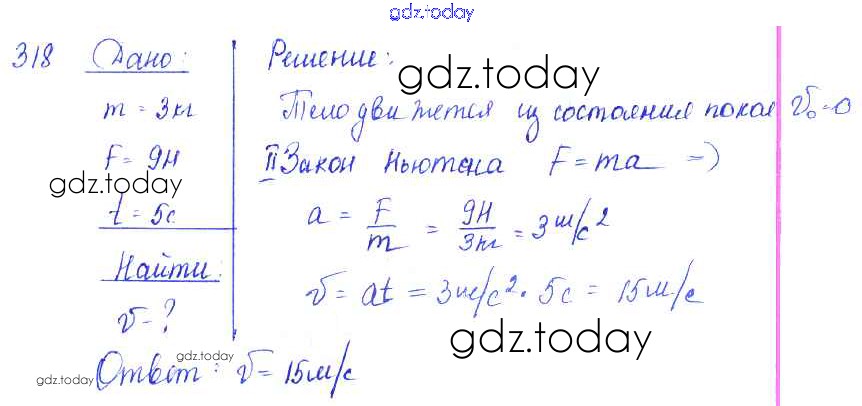 gdz.today
318 Дано:
m = 3кг
F = 9Н
gdz.today
t = 5с
Найти:
v - ?
Решение:
gdz.today
Тело движется из состояния покоя v₀=0
II Закон Ньютона F = ma =>
a = F/m = 9Н/3кг = 3м/с²
v = at = 3м/с² · 5с = 15м/с
gdz.today
gdz.today
gdz.today
Ответ: v = 15м/с